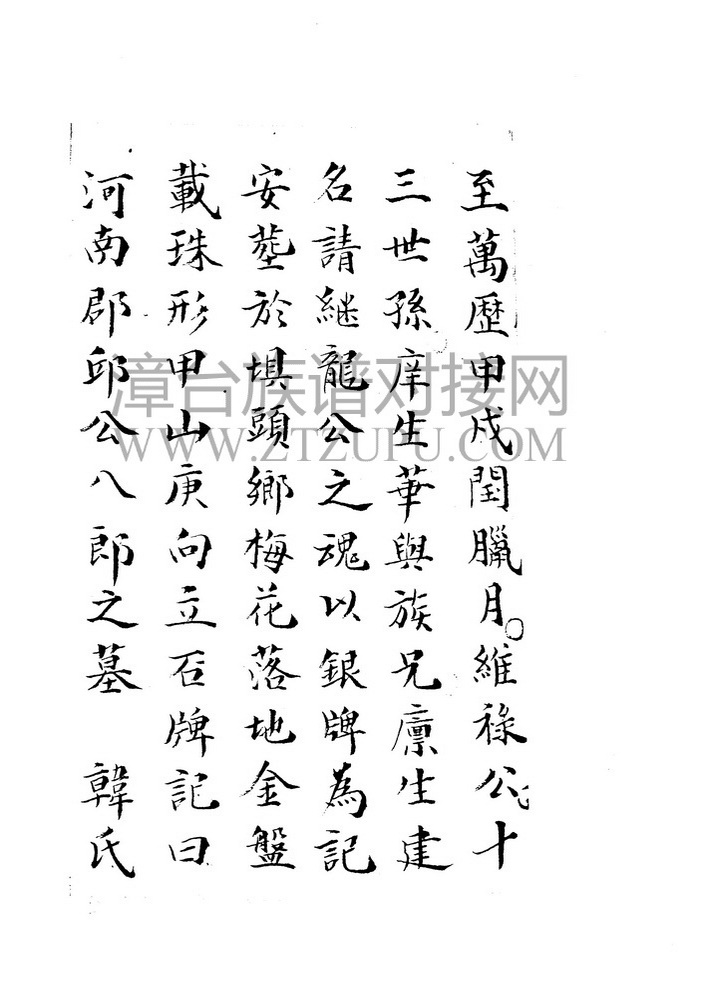 至萬歷甲戍閏臘月維祿公十
三世孫庠生華與族兄廪生建
名請継龍公之魂以銀牌為記
安塟於埧頭鄉梅花落地金盤
載珠形甲山庚向立石牌記曰
河南郡邱公八郎之墓 韓氏
漳台族谱对接网
WWW.ZTZUPU.COM